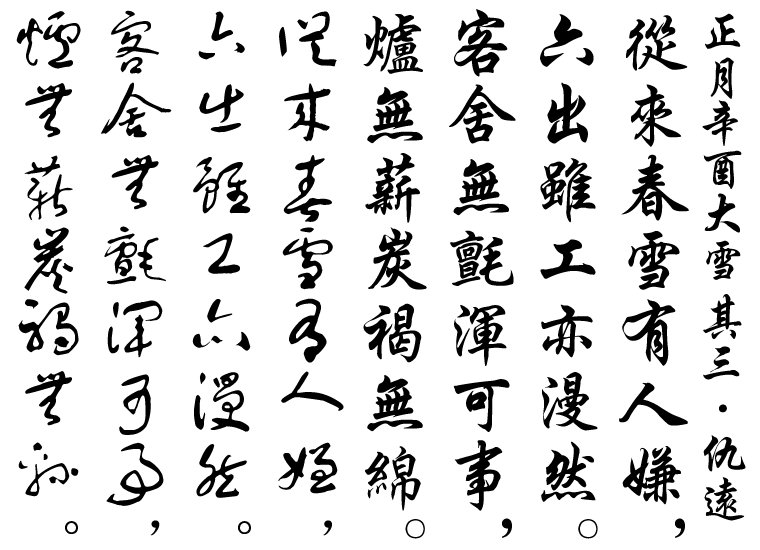 正月辛酉大雪其三·仇遠
從來春雪有人嫌，
六出雖工亦漫然。
客舍無氈渾可事，
爐無薪炭褐無綿。
從來春雪有人嫌，
六出雖工亦漫然。
客舍無氈渾可事，
爐無薪炭褐無綿。